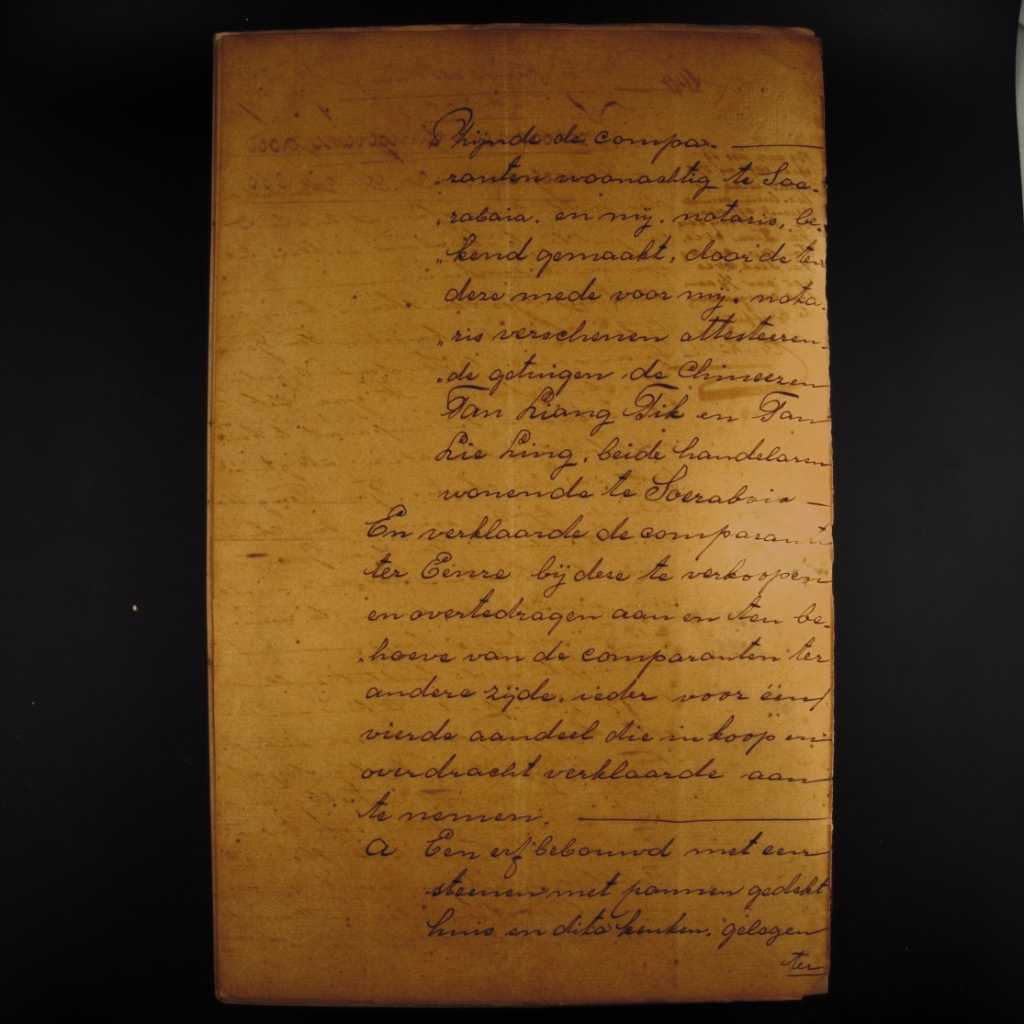 Zijnde de compa-
ranten woonachtig te Soe-
rabaia. en mij. notaris, be-
kend gemaakt, door de ten
deze mede voor mij. nota-
ris verschenen attesteeren-
de getuigen de Chineezen
Tan Liang Tik en Tan
Lie Ling, beide handelaren
wonende te Soerabaia —
En verklaarde de comparant
ter Eenre bij deze te verkoopen
en overtedragen aan en ten be-
hoeve van de comparanten ter
andere zijde, ieder voor één/
vierde aandeel die in koop en
overdracht verklaarde aan
te nemen. —
A Een erf bebouwd met een
steenen met pannen gedekt
huis en dito keuken, gelegen
ter